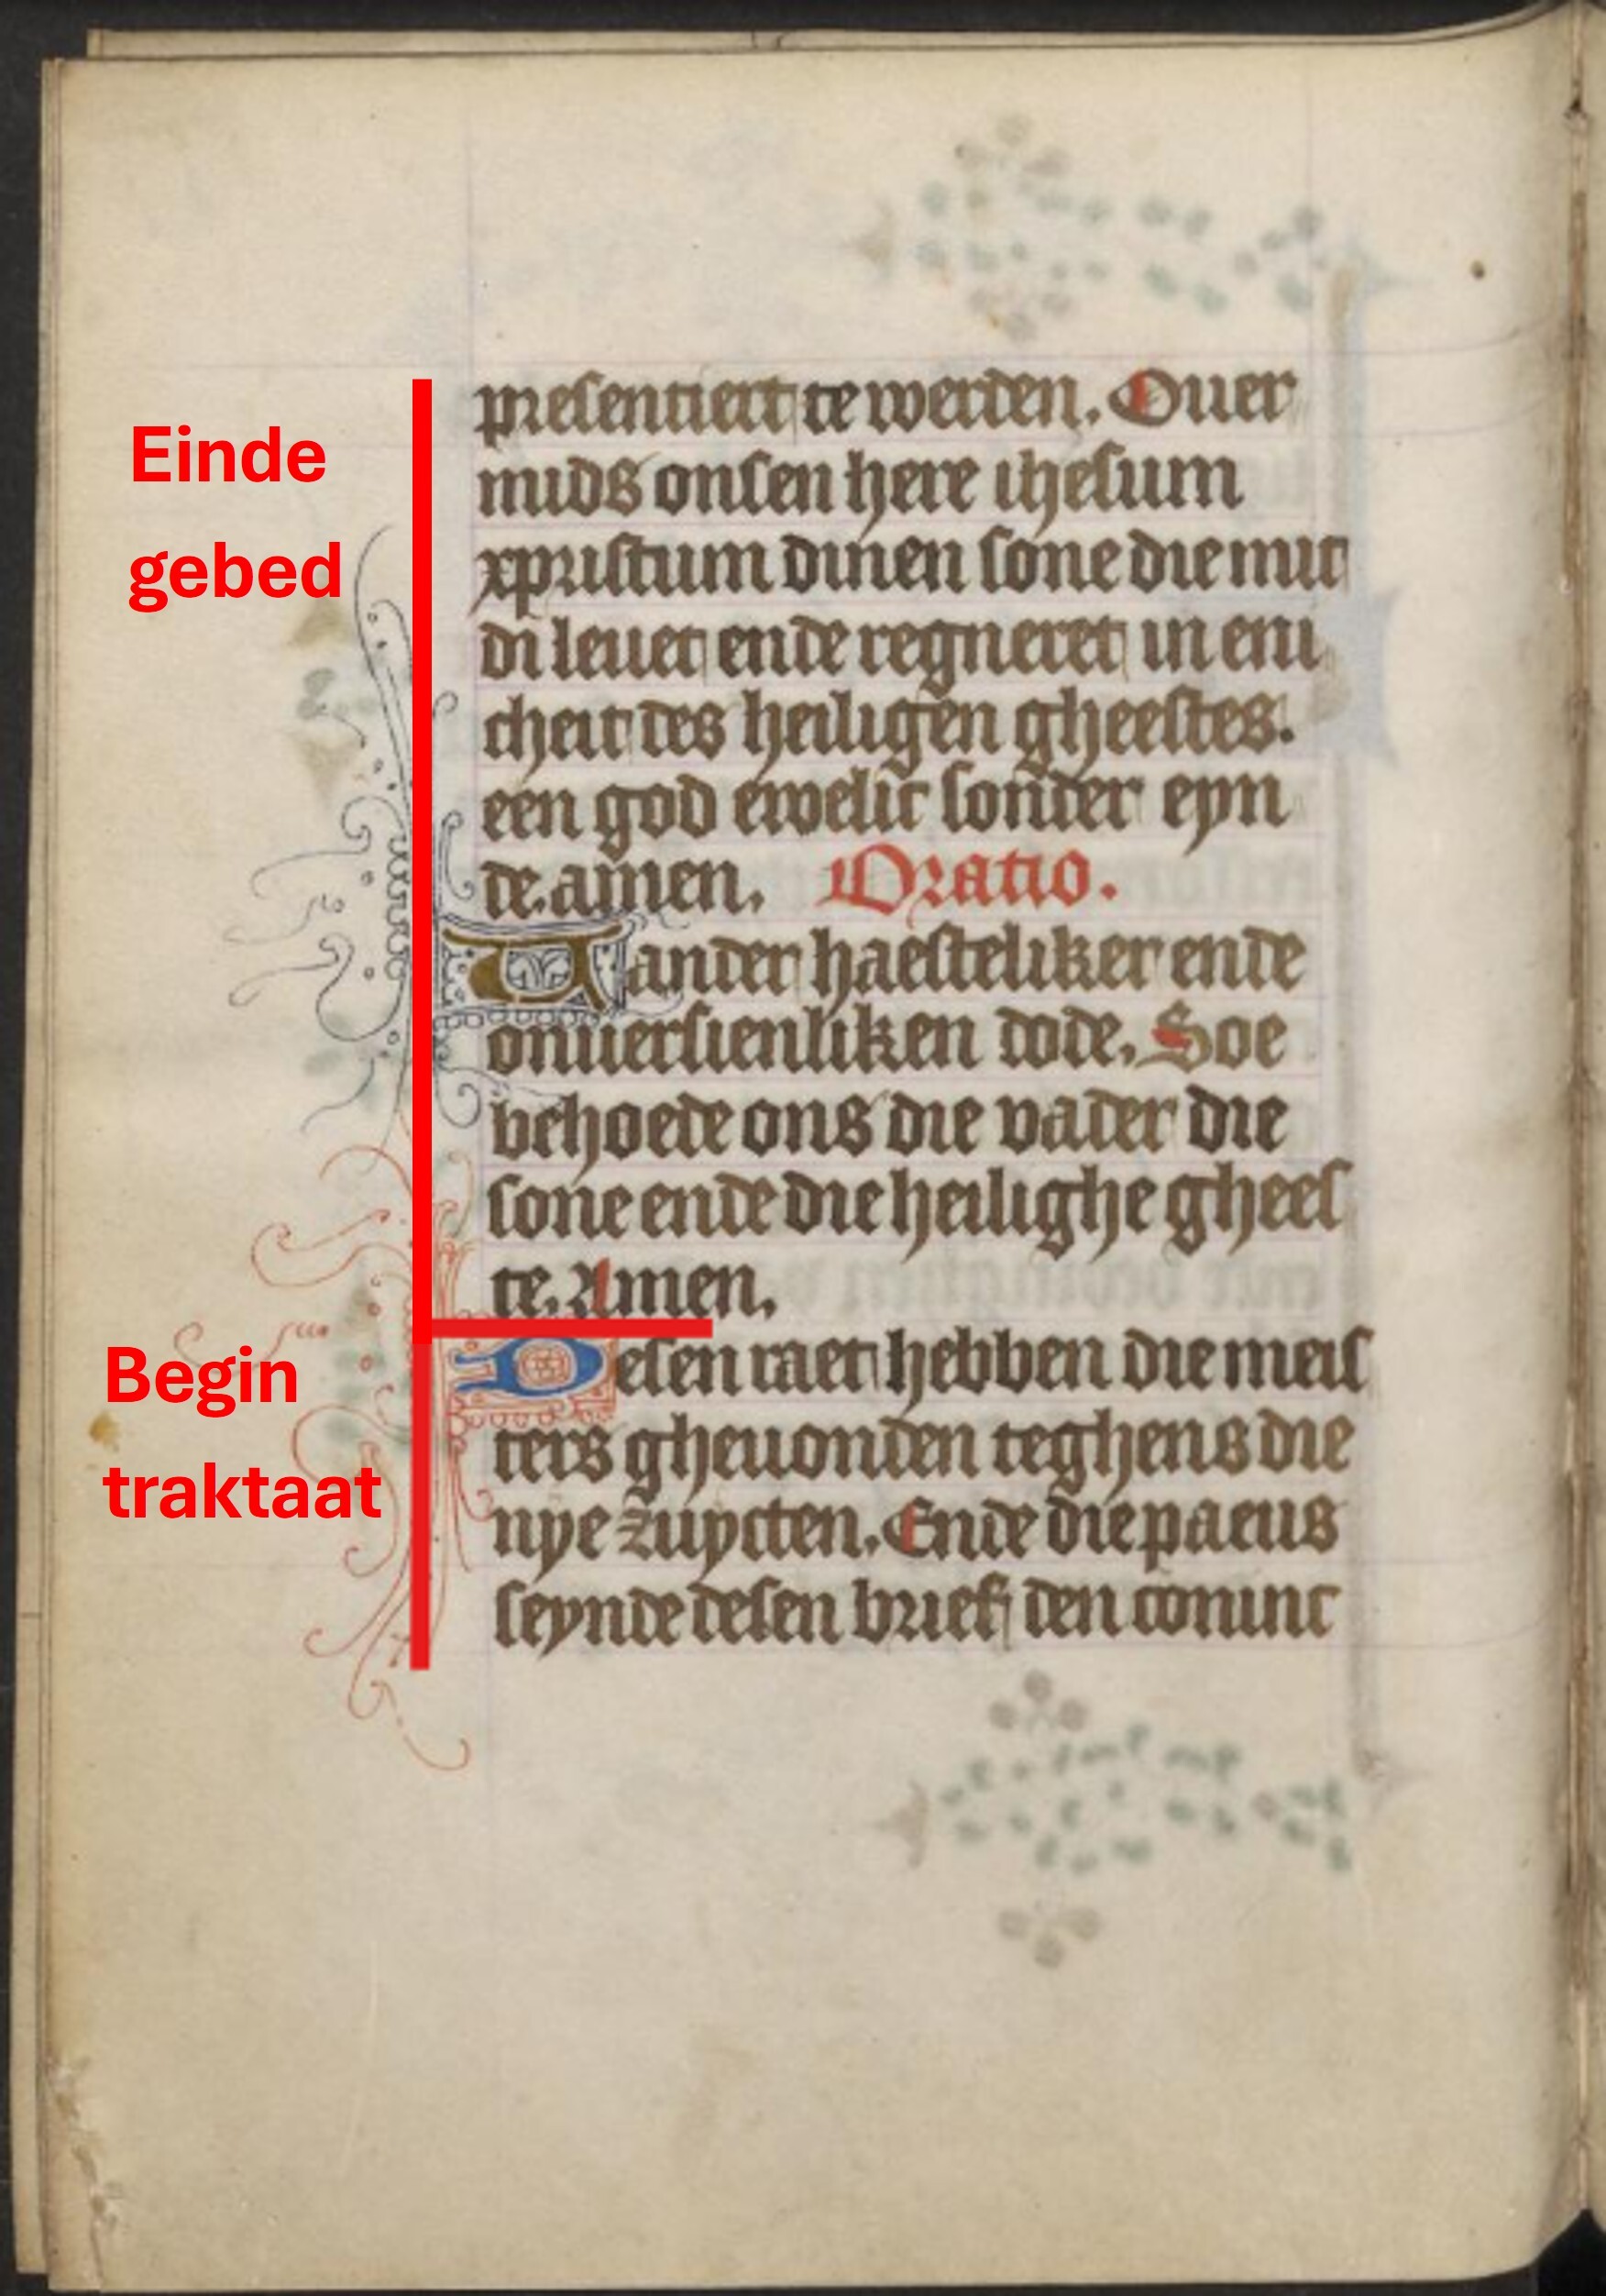 Einde
gebed
presentiert te werden. Ouer
mids onsen here ihesum
xpristum dinen sone die mit
di leuet ende regneret in eni
cheit des heiligen gheestes.
een god ewelic sonder eyn
de. amen. Oratio.
Uander haesteliker ende
onuersienliken dode. Soe
behoede ons die vader die
sone ende die heilighe ghees
te. Amen.
Begin
traktaat
Desen raet hebben die meis
ters gheuonden teghens die
nye zuycten. Ende die paeus
seynde desen brief den coninc